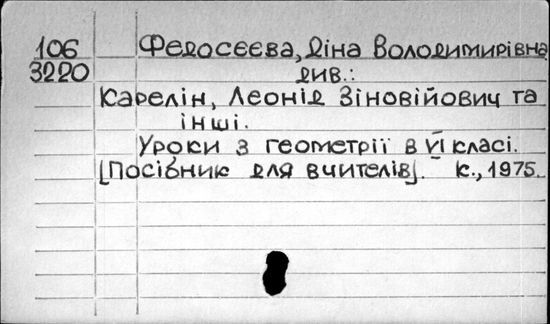 106
3220
Федосєєва, Діна Володимирівна
див.:
Карелін, Леонід Зіновійович та
інші.
Уроки з геометрії в VI класі.
[Посібник для вчителів]. К., 1975.